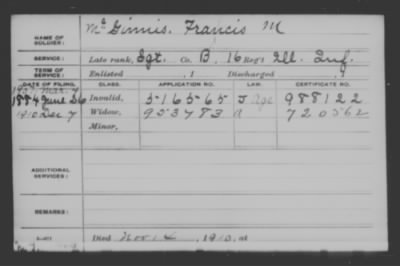 McGinnis, Francis M
NAME OF SOLDIER:
SERVICE: Late rank, Sgt. Co. B, 16 Reg't Ill. Inf.
TERM OF SERVICE: Enlisted , 1 Discharged , 1
DATE OF FILING. CLASS. APPLICATION NO. LAW. CERTIFICATE NO.
1884 June 26 Invalid, 516565 J Age 988122
1910 Dec 7 Widow, 953783 a 720562
Minor,
ADDITIONAL SERVICES:
REMARKS:
Died Nov 14, 1910, at